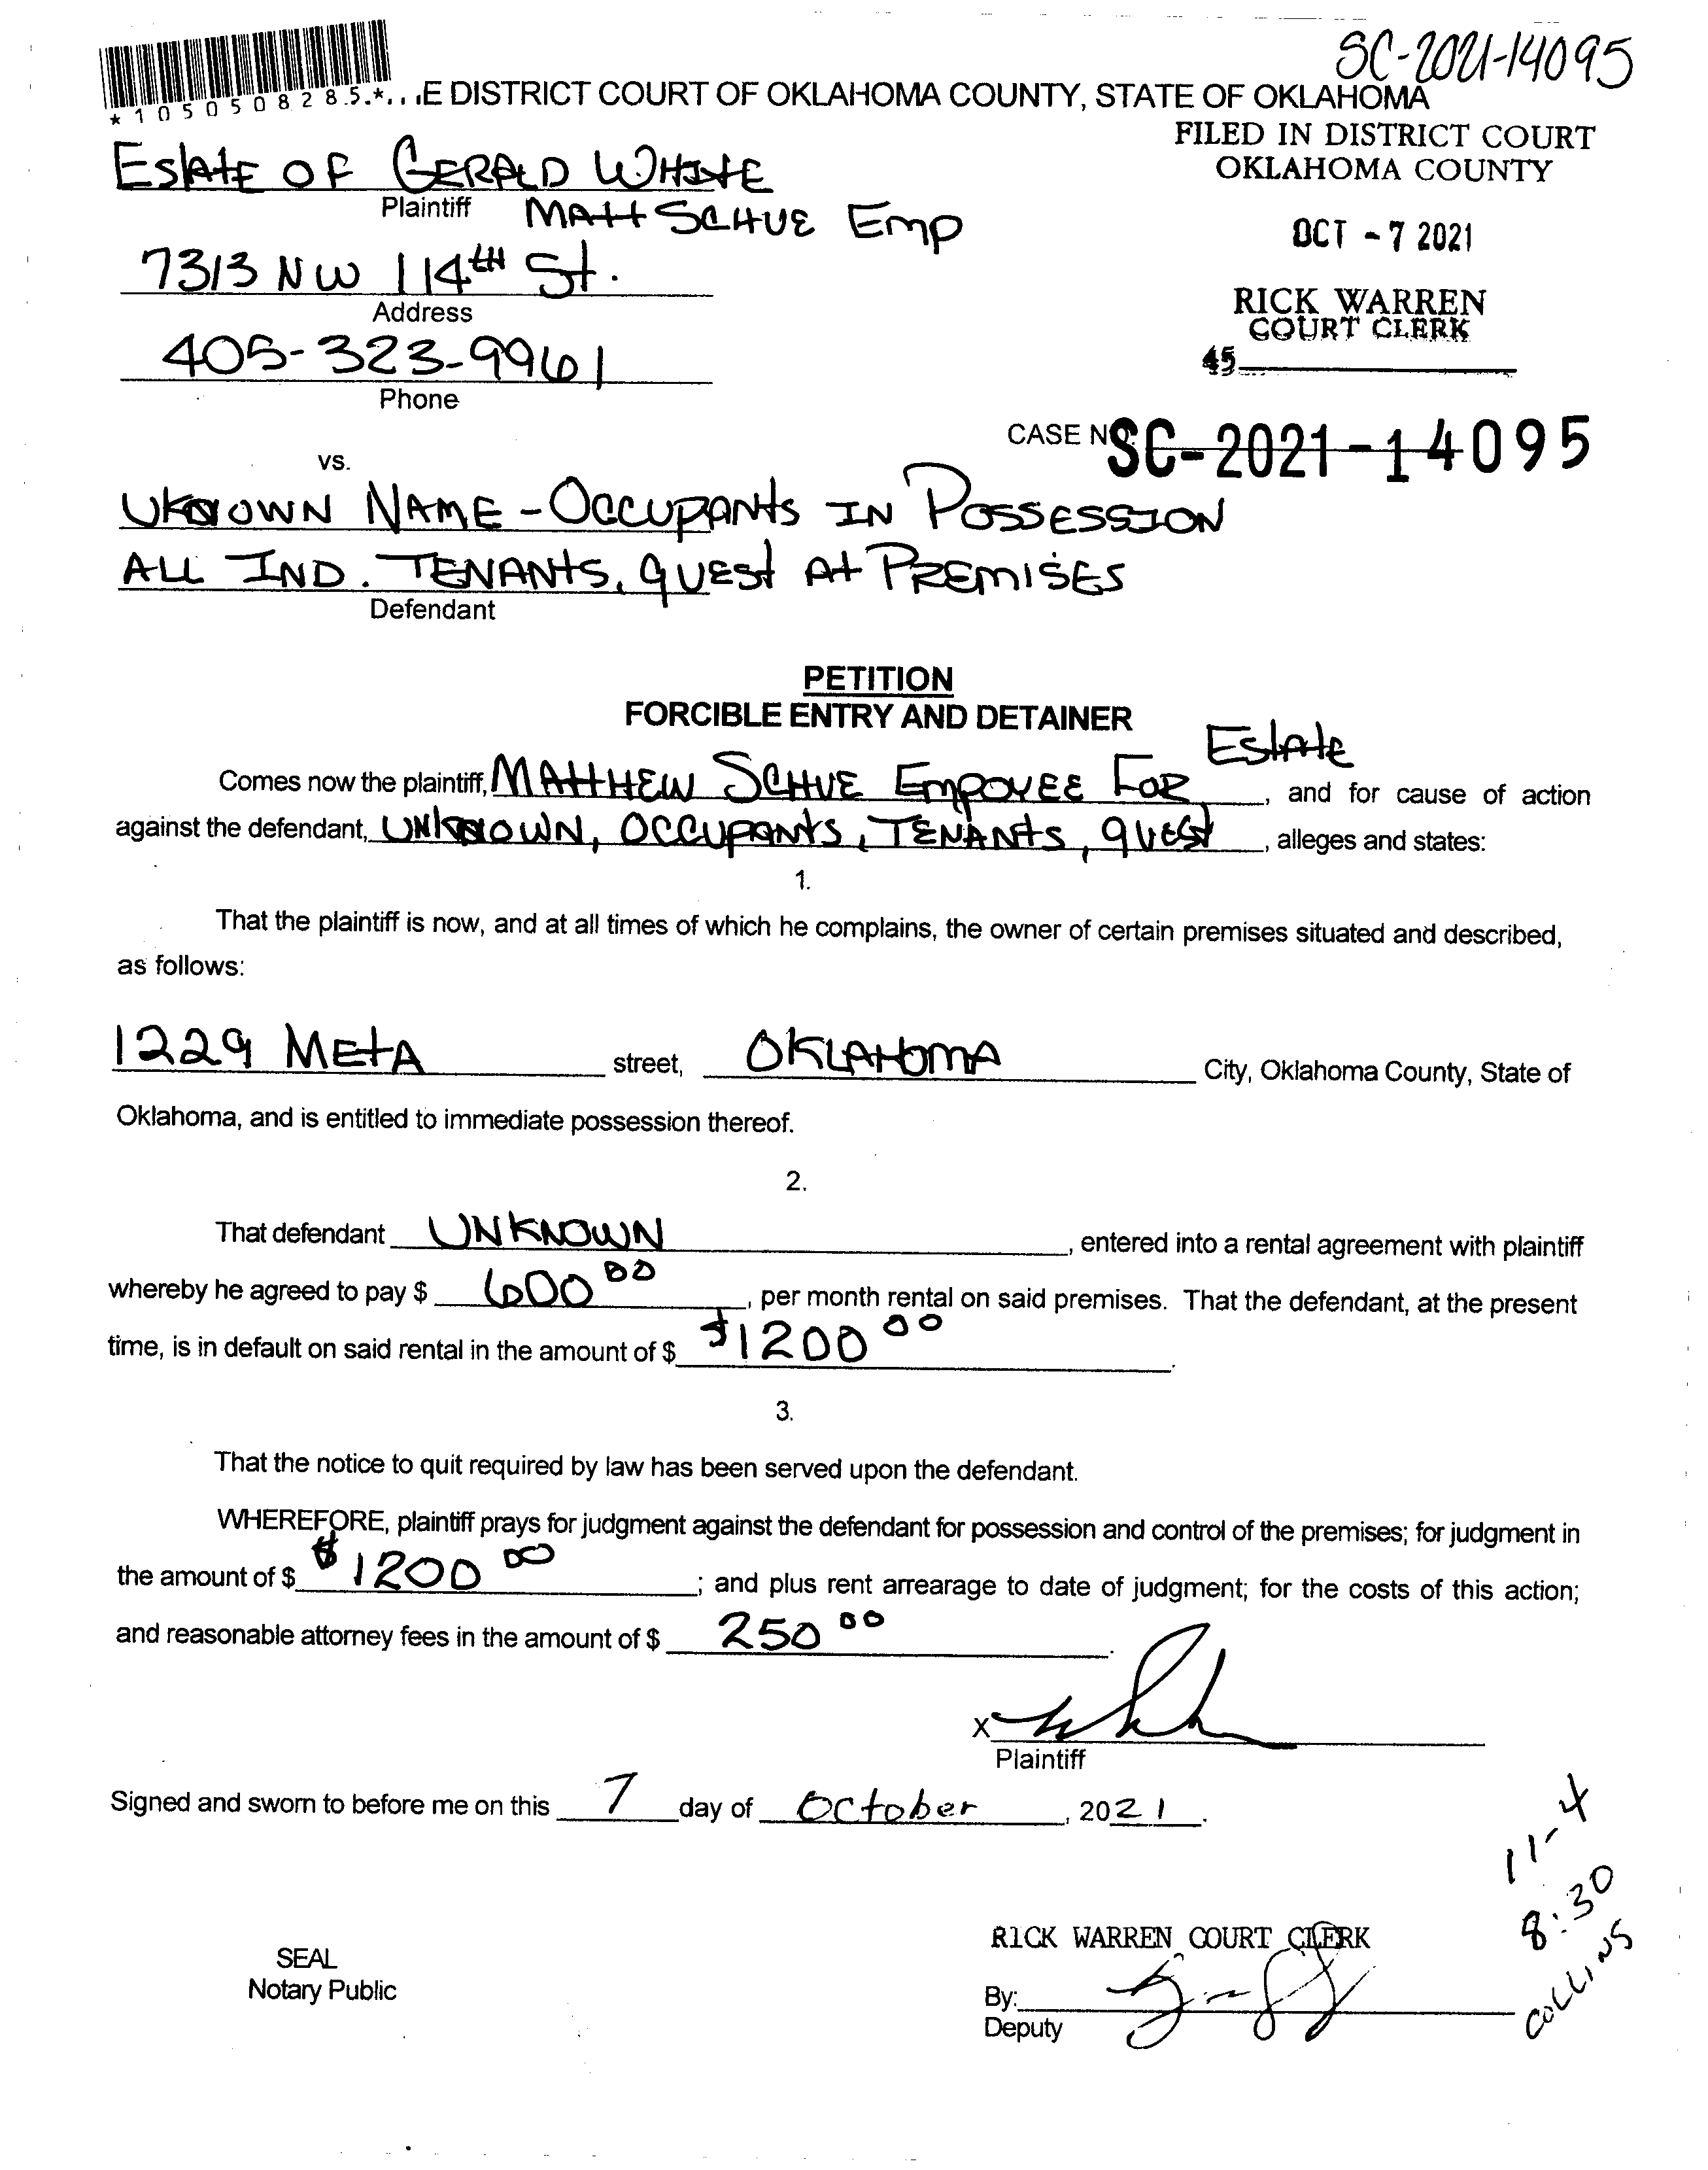 SC-2021-14095
*1050508285.*...E DISTRICT COURT OF OKLAHOMA COUNTY, STATE OF OKLAHOMA
FILED IN DISTRICT COURT
OKLAHOMA COUNTY
Estate of Gerald White
Plaintiff Matt Schue Emp
OCT - 7 2021
7313 NW 114th St.
Address
RICK WARREN
COURT CLERK
405-323-9961
45
Phone
CASE NO. SC-2021-14095
vs.
Uknown Name - Occupants in Possession
All Ind. Tenants, guest at Premises
Defendant
PETITION
FORCIBLE ENTRY AND DETAINER
Estate
Comes now the plaintiff, Matthew Schue Empoyee For, and for cause of action
against the defendant, Unknown, Occupants, Tenants, guest, alleges and states:
1.
That the plaintiff is now, and at all times of which he complains, the owner of certain premises situated and described,
as follows:
1229 Meta street, Oklahoma City, Oklahoma County, State of
Oklahoma, and is entitled to immediate possession thereof.
2.
That defendant Unknown, entered into a rental agreement with plaintiff
whereby he agreed to pay $ 600 00, per month rental on said premises. That the defendant, at the present
time, is in default on said rental in the amount of $ $1200 00.
3.
That the notice to quit required by law has been served upon the defendant.
WHEREFORE, plaintiff prays for judgment against the defendant for possession and control of the premises; for judgment in
the amount of $ $1200 00; and plus rent arrearage to date of judgment; for the costs of this action;
and reasonable attorney fees in the amount of $ 250 00.
X
Plaintiff
Signed and sworn to before me on this 7 day of October, 2021.
11-4
8:30
COLLINS
RICK WARREN COURT CLERK
SEAL
Notary Public
By:
Deputy